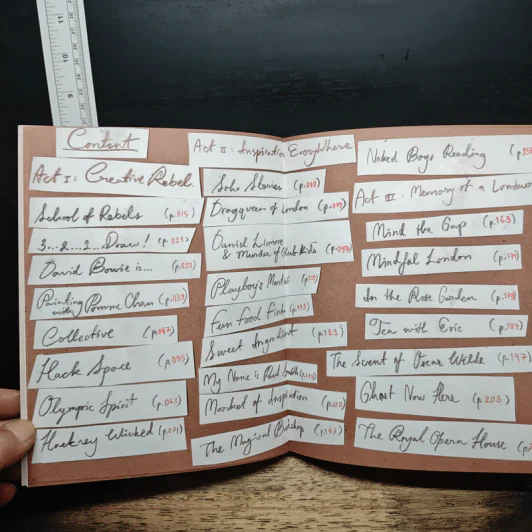 Content
Act I: Creative Rebel.
School of Rebels (p.015)
3...2...2...Draw! (p.021)
David Bowie is... (p.032)
Painting with Pomme Chan (p.039)
Collective (p.047)
Hack Space (p.055)
Olympic Spirit (p.065)
Hackney Wicked (p.071)
Act II: Inspiration Everywhere
Soho Stories (p.080)
Dragqueen of London (p.089)
Daniel Lismore
& Murder of Club Kids (p.097)
Playboy's (p.105)
Fun Food Finds (p.113)
Sweet Ingredient (p.122)
My Name is Paul Smith
Market of Inspiration
The Magical Bookshop (p.145)
Naked Boys Reading
Act III. Memory of a London
Mind the Gap (p.163)
Mindful London (p.171)
In the Rose Garden (p.178)
Tea with Eric (p.184)
The Scent of Oscar Wilde (p.197)
Ghost Now Here (p.205)
The Royal Opera House